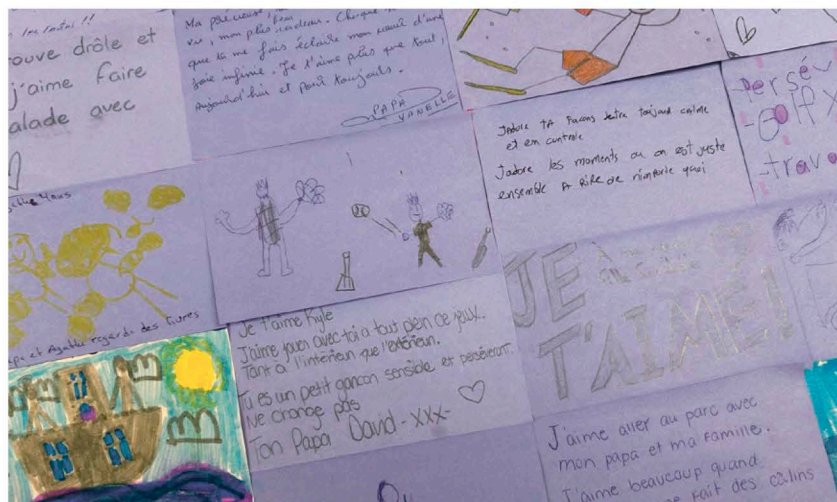 les !!
ouve drôle et
j'aime faire
alade avec
Ma
vie, mon plus beau cadeau. Chaque
que tu me fais éclaire mon d'une
joie infinie. Je t'aime plus que tout,
aujourd'hui et pour toujours.
PAPA
YANELLE
J'adore TA Facons d'etre toujours calme
et em controle
J'adore les moments ou on est juste
ensemble A Rire de n'importe quoi
Persév
-Golf
-trava
4 ans
et Agathe regarde des livres
JE
T'AIME!
Je t'aime Kyle
J'aime jouer avec toi a tout plein de jeux.
Tant a l'interieur que l'exterieur.
Tu es un petit garcon sensible et perséverant.
Ne change pas
Ton Papa David -xxx-
J'aime aller au parc avec
mon papa et ma famille.
J'aime beaucoup quand
me fait des câlins